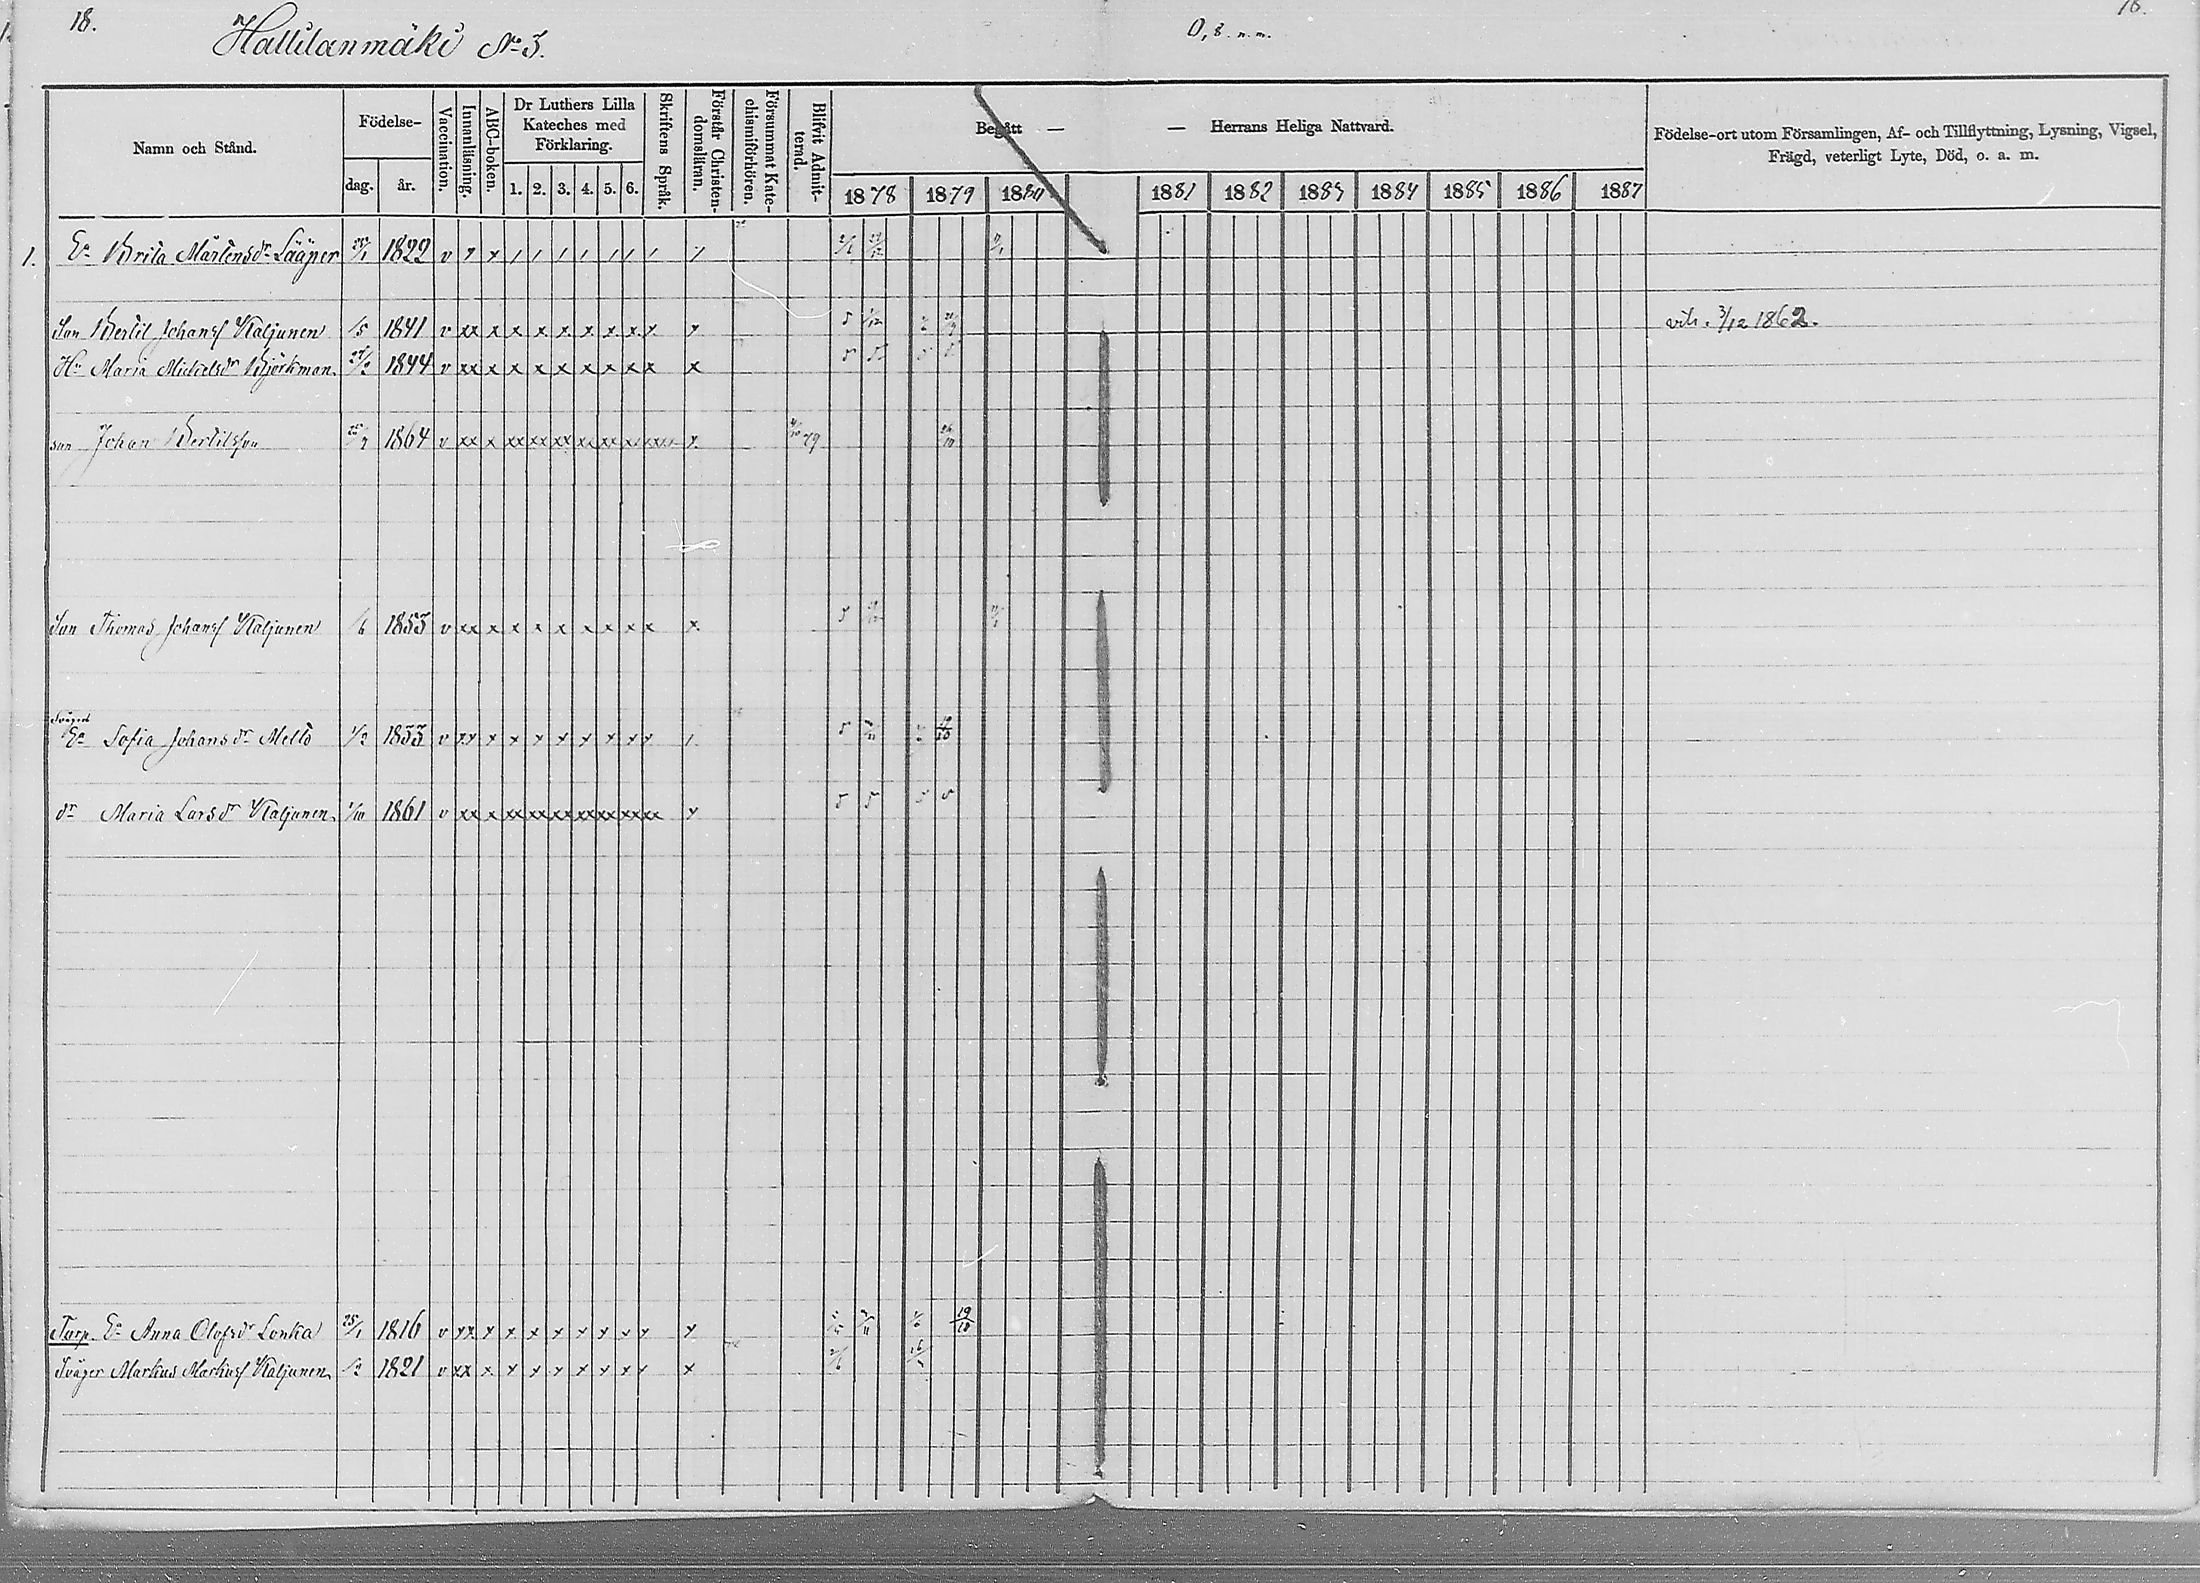 18.
Hallilanmäki No 3.
0,8 n.m.
18.
Namn och Stånd.
Födelse-
dag. år.
Vaccination.
Innanläsning.
ABC-boken.
Dr Luthers Lilla
Kateches med
Förklaring.
1. 2. 3. 4. 5. 6.
Skriftens Språk.
Förstår Christen-
domsläran.
Försummat Kate-
chismiförhören.
Blifvit Admit-
terad.
Begått — — Herrans Heliga Nattvard.
1878 1879 1880 1881 1882 1883 1884 1885 1886 1887
Födelse-ort utom Församlingen, Af- och Tillflyttning, Lysning, Vigsel,
Frägd, veterligt Lyte, Död, o. a. m.
1. Ea Brita Mårtensdr Lääper 1822 v x x / / / / / / / /
Son Bertil Johansf Kaljunen /5 1841 v xx x x x x x x x x x vih. 3/12 1862.
Hu Maria Mickelsdr Björkman 27/2 1844 v xx x x x x x x x x x
son Johan Bertilsson 1864 v xx x xx xx xx xx xx xx xx x 79 26/10
Son Thomas Johansf Kaljunen /6 1853 v xx x x x x x x x x x
Svägers
Ea Sofia Johansdr Melto 1/2 1833 v xx x x x x x x x x / 19/10
dr Maria Larsdr Kaljunen 1/10 1861 v xx x xx xx xx xx xx xx xx x
Torp. Ea Anna Olofsdr Lonka 25/1 1816 v xx x x x x x x x x x 19/10
Sväger Markus Markusf Kaljunen /2 1821 v xx x x x x x x x x x